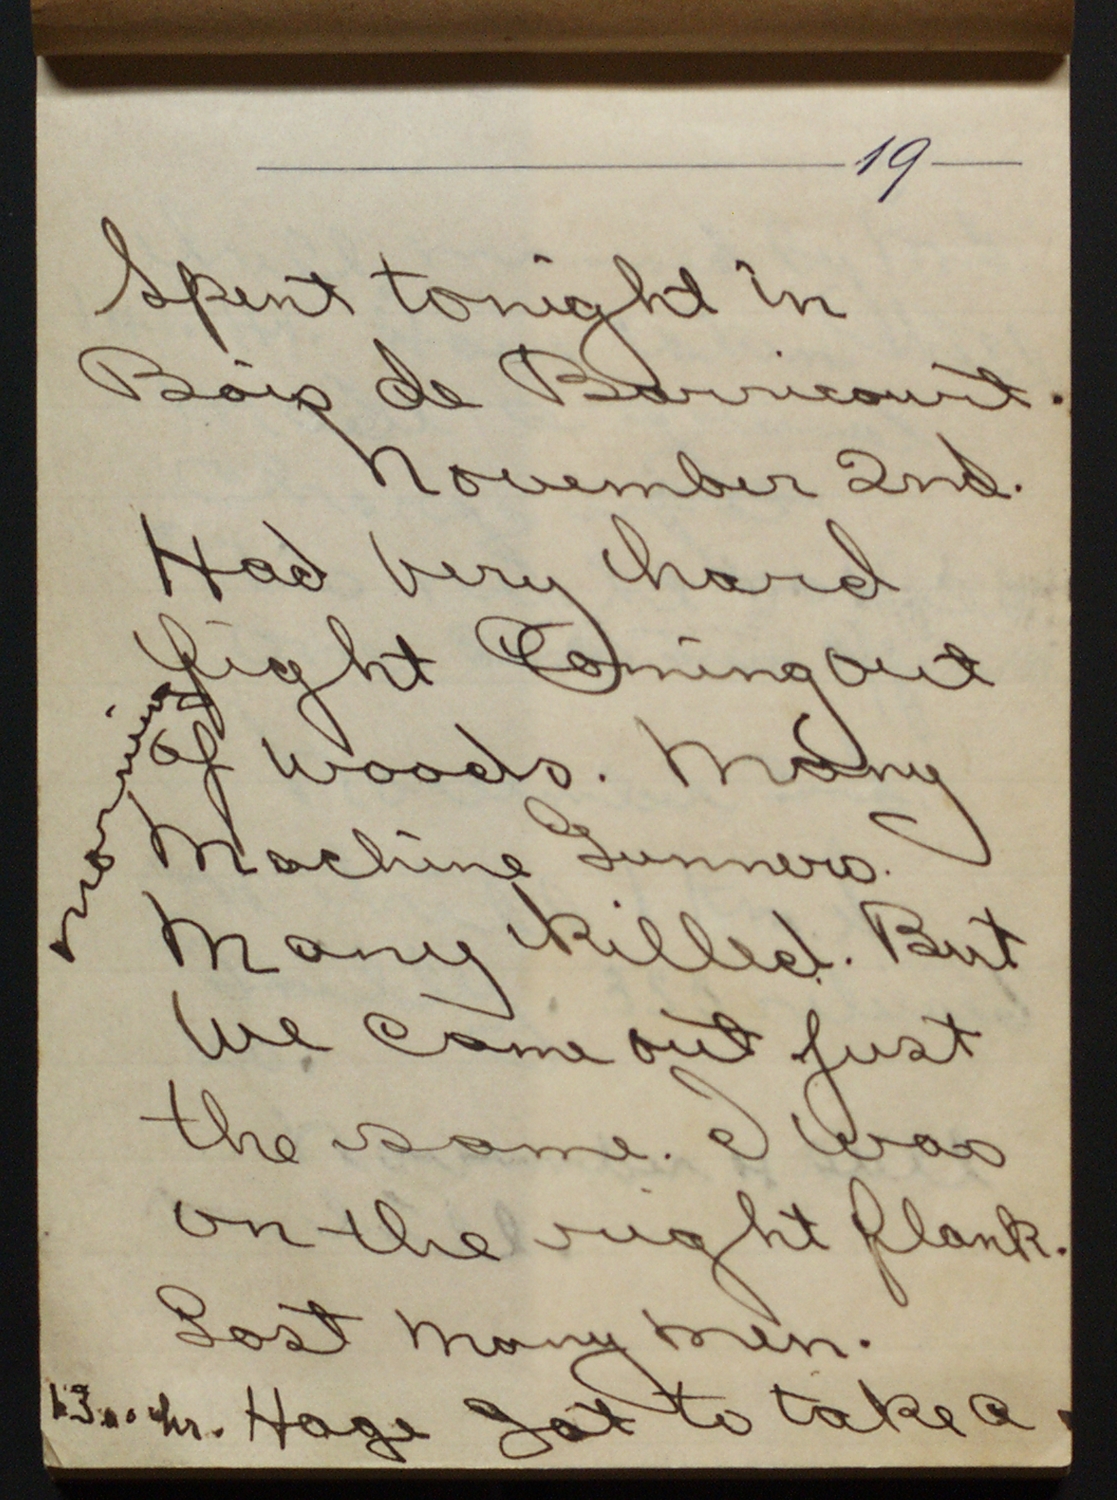 19
Spent tonight in
Bois de Barricourt.
November 2nd.
Had very hard
fight Coming out
of woods. Many
morning
Machine Gunners.
Many killed. But
we came out just
the same. I was
on the right flank.
Lost many men.
hr. Hage Got to take a